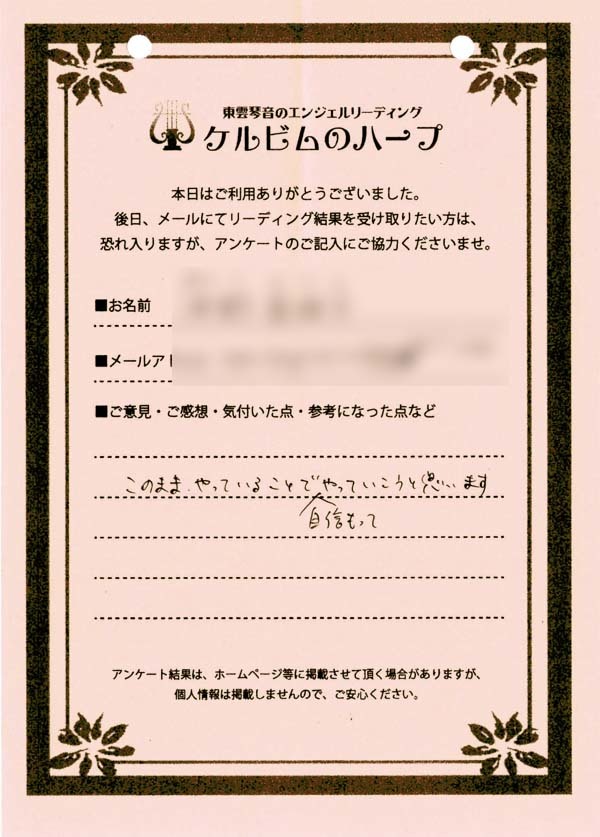 東雲琴音のエンジェルリーディング
ケルビムのハープ
本日はご利用ありがとうございました。
後日、メールにてリーディング結果を受け取りたい方は、
恐れ入りますが、アンケートのご記入にご協力くださいませ。
■お名前
■メールアド
■ご意見・ご感想・気付いた点・参考になった点など
このまま、やっていることでやっていこうと思います
自信もって
アンケート結果は、ホームページ等に掲載させて頂く場合がありますが、
個人情報は掲載しませんので、ご安心ください。